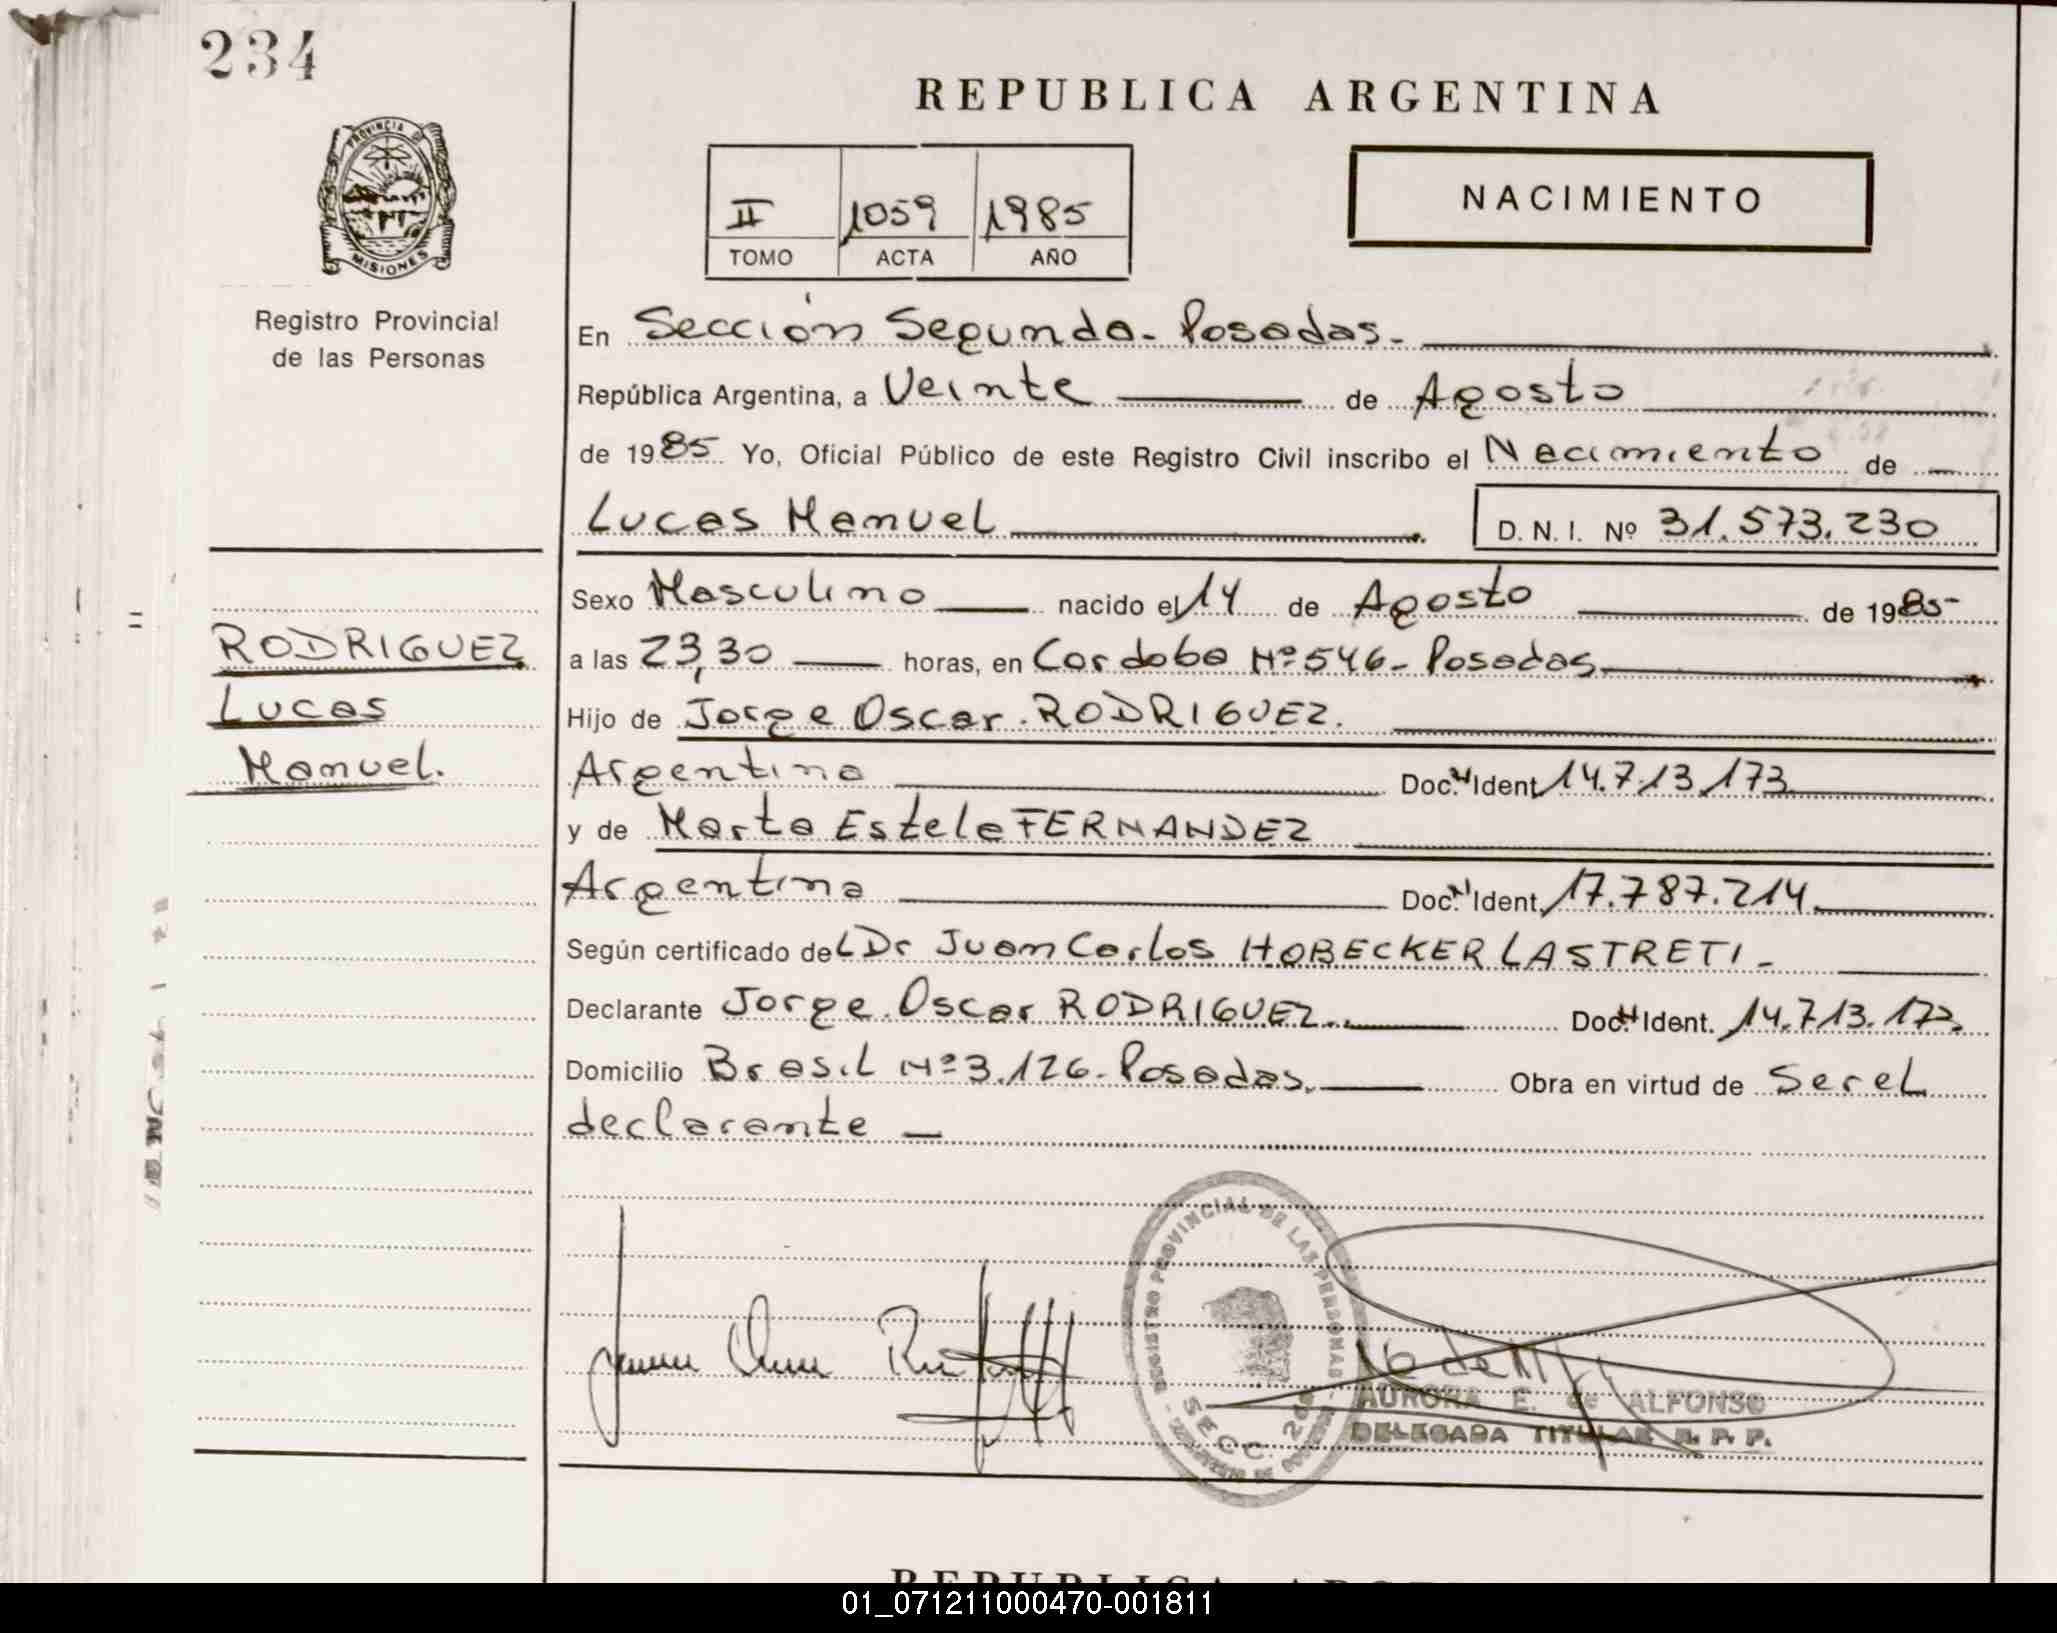 234
REPUBLICA ARGENTINA
PROVINCIA DE
MISIONES
II 1059 1985
TOMO ACTA AÑO
NACIMIENTO
Registro Provincial
de las Personas
En Sección Segunda- Posadas-
República Argentina, a Veinte de Agosto
de 1985 Yo, Oficial Público de este Registro Civil inscribo el Nacimiento de
Lucas Manuel
D. N. I. Nº 31.573.230
Sexo Masculino nacido el 14 de Agosto de 1985
RODRIGUEZ
Lucas
Manuel.
a las 23,30 horas, en Cordoba Nº 546- Posadas
Hijo de Jorge Oscar RODRIGUEZ.
Argentino Doc. N Ident. 14.713.173
y de Marta Estela FERNANDEZ
Argentina Doc. N Ident. 17.787.214
Según certificado del Dr Juan Carlos HOBECKER LASTRETI-
Declarante Jorge Oscar RODRIGUEZ. Doc. N Ident. 14.713.173
Domicilio Brasil Nº 3.126- Posadas. Obra en virtud de Ser el
declarante
REGISTRO PROVINCIAL DE LAS PERSONAS
SECC. 2da
AURORA E. de ALFONSO
DELEGADA TITULAR R. P. P.
01_071211000470-001811